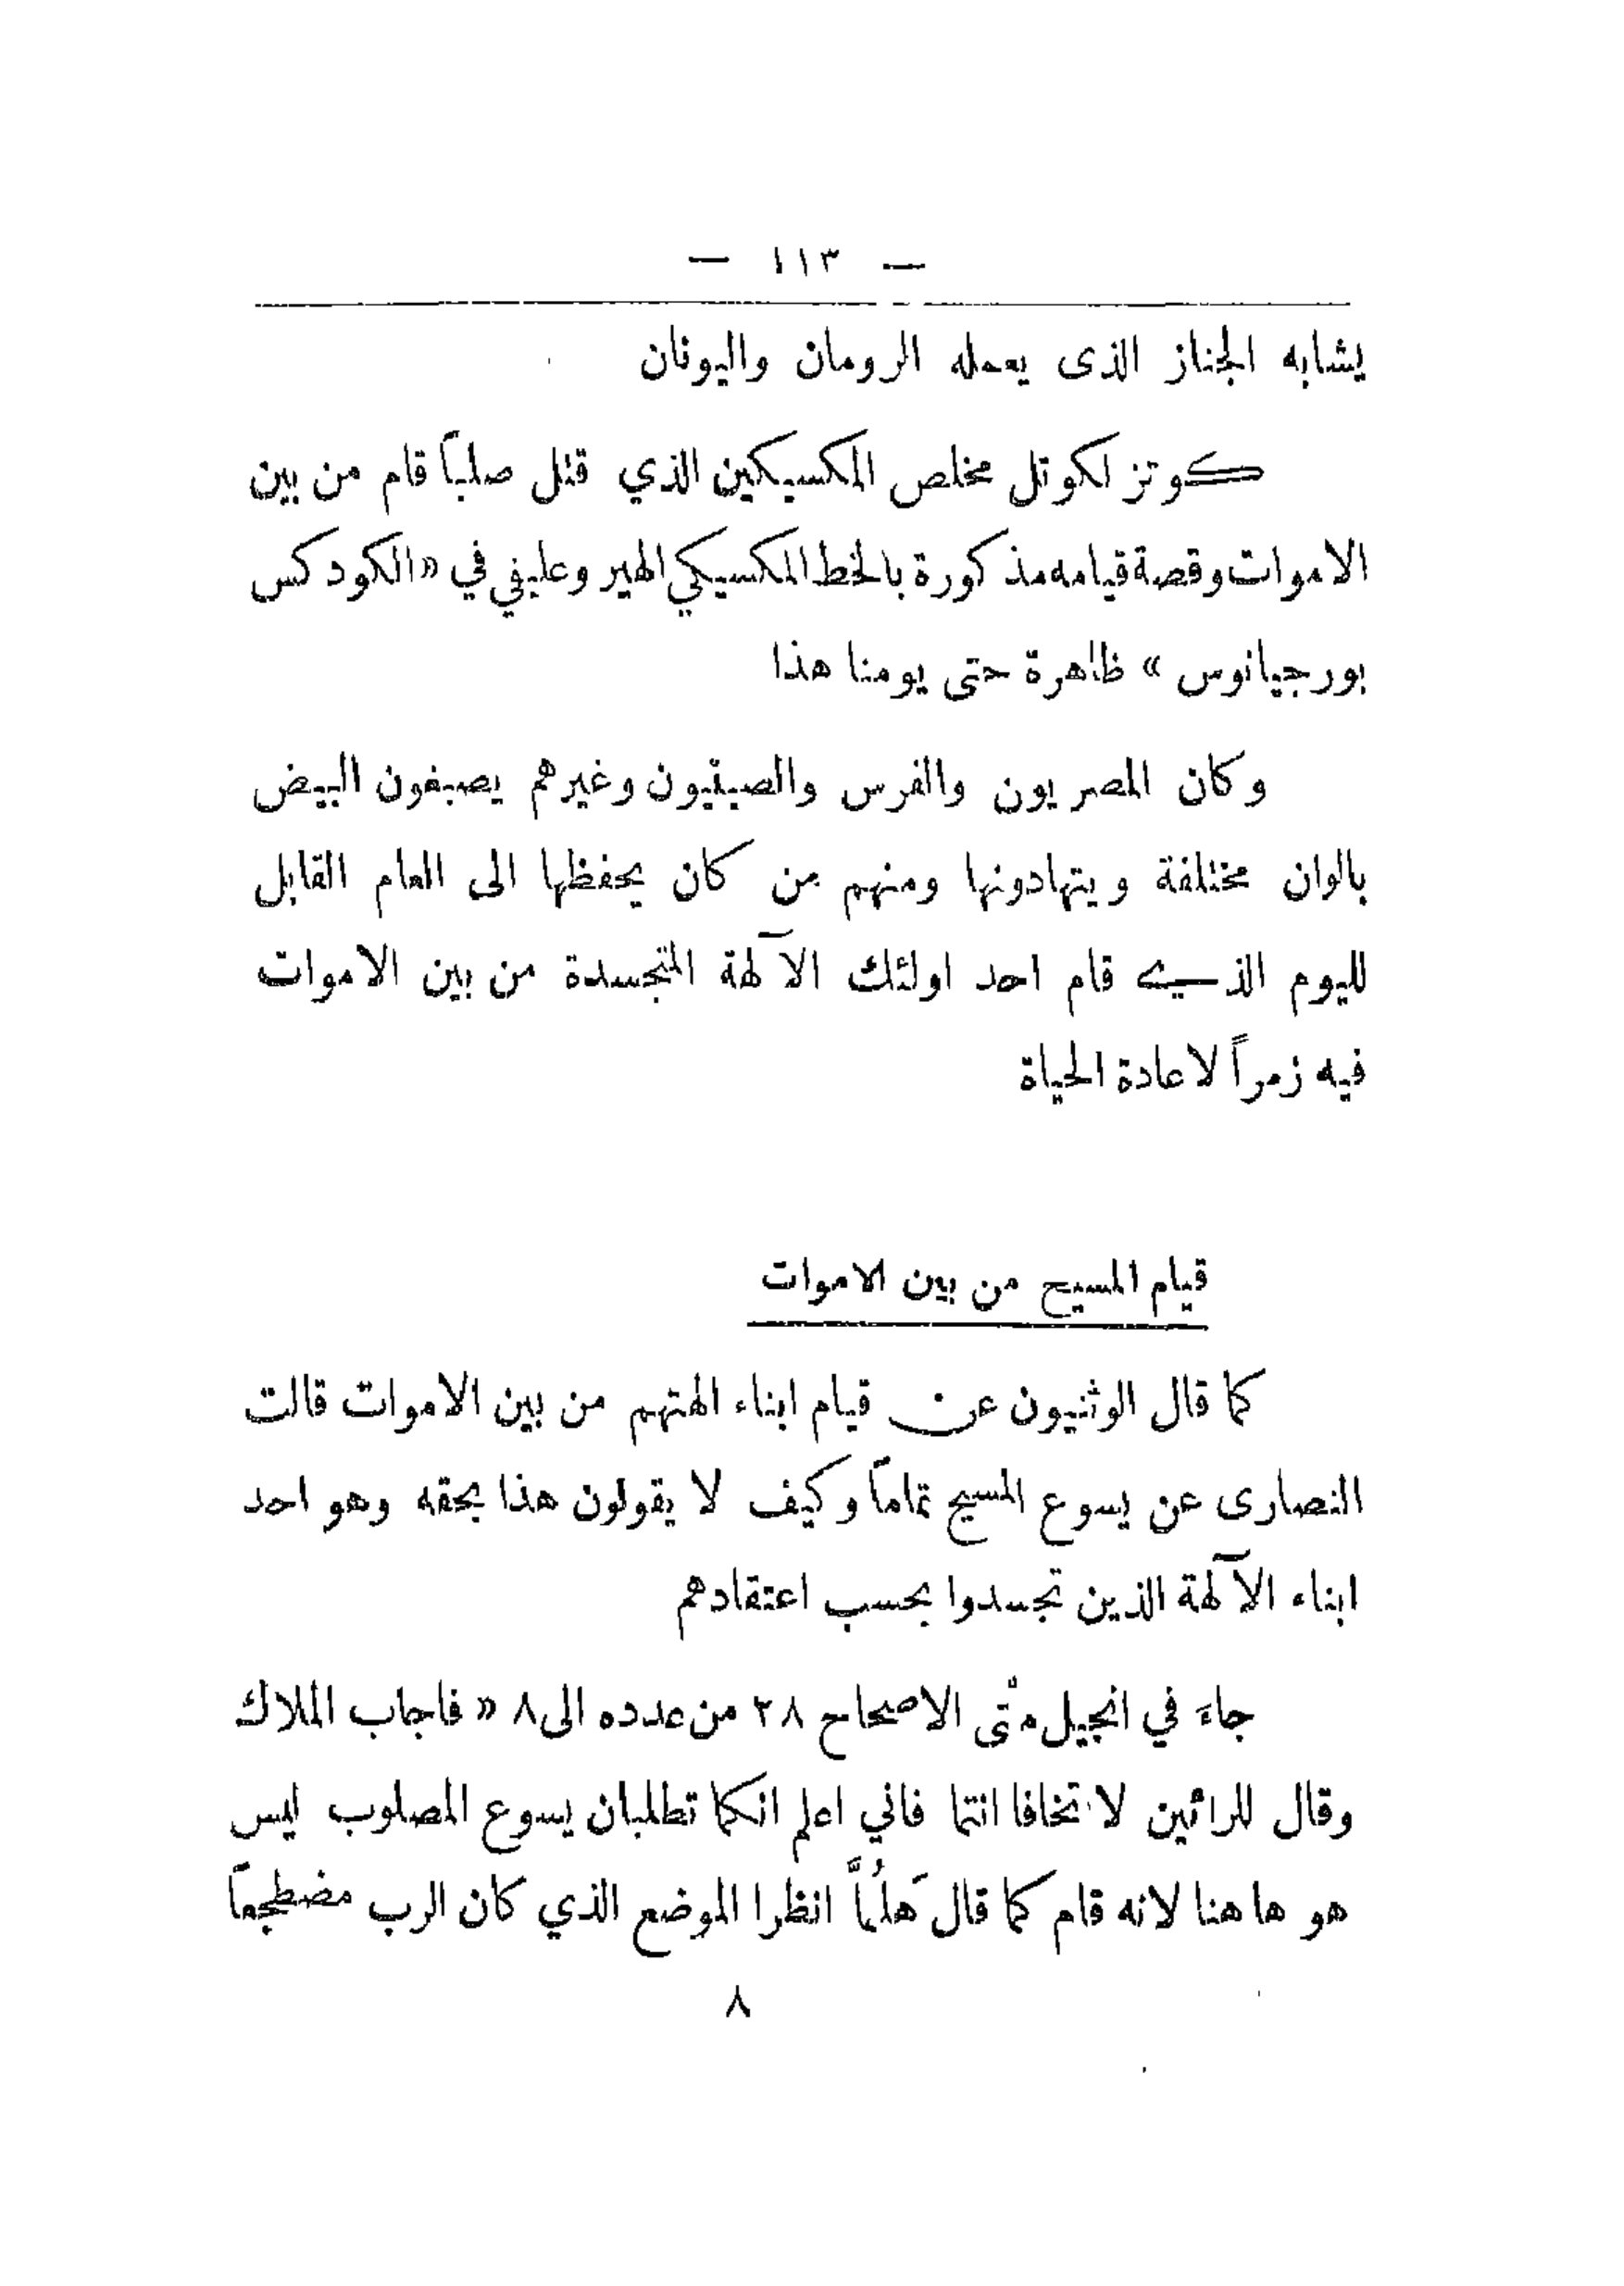 — ١١٣ —
يشابه الجناز الذى يعمله الرومان واليونان
كوتز لكوتل مخلص المكسيكين الذي قتل صلباً قام من بين
الاموات وقصة قيامه مذكورة بالخط المكسيكي الهير وعليفي في «الكودكس
بورجيانوس» ظاهرة حتى يومنا هذا
وكان المصريون والفرس والصينيون وغيرهم يصبغون البيض
بالوان مختلفة ويتهادونها ومنهم من كان يحفظها الى العام القابل
لليوم الذي قام احد اولئك الآلهة المتجسدة من بين الاموات
فيه زمراً لاعادة الحياة
قيام المسيح من بين الاموات
كما قال الوثنيون عن قيام ابناء الهتهم من بين الاموات قالت
النصارى عن يسوع المسيح تماماً وكيف لا يقولون هذا بحقه وهو احد
ابناء الآلهة الذين تجسدوا بحسب اعتقادهم
جاءَ في انجيل متّى الاصحاح ٢٨ من عدده الى ٨ «فاجاب الملاك
وقال للرائين لا تخافا انتما فاني اعلم انكما تطلبان يسوع المصلوب ليس
هو ها هنا لانه قام كما قال هَلُمَّا انظرا الموضع الذي كان الرب مضطجعاً
٨